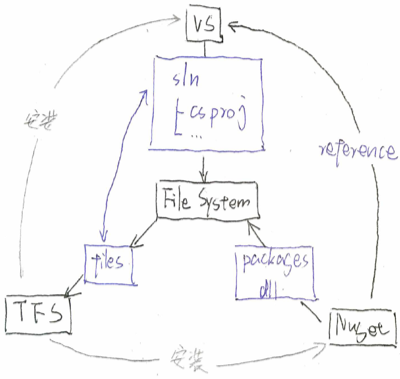 VS
sln
csproj
...
安装
reference
File System
files
packages
dll
TFS
Nuget
安装